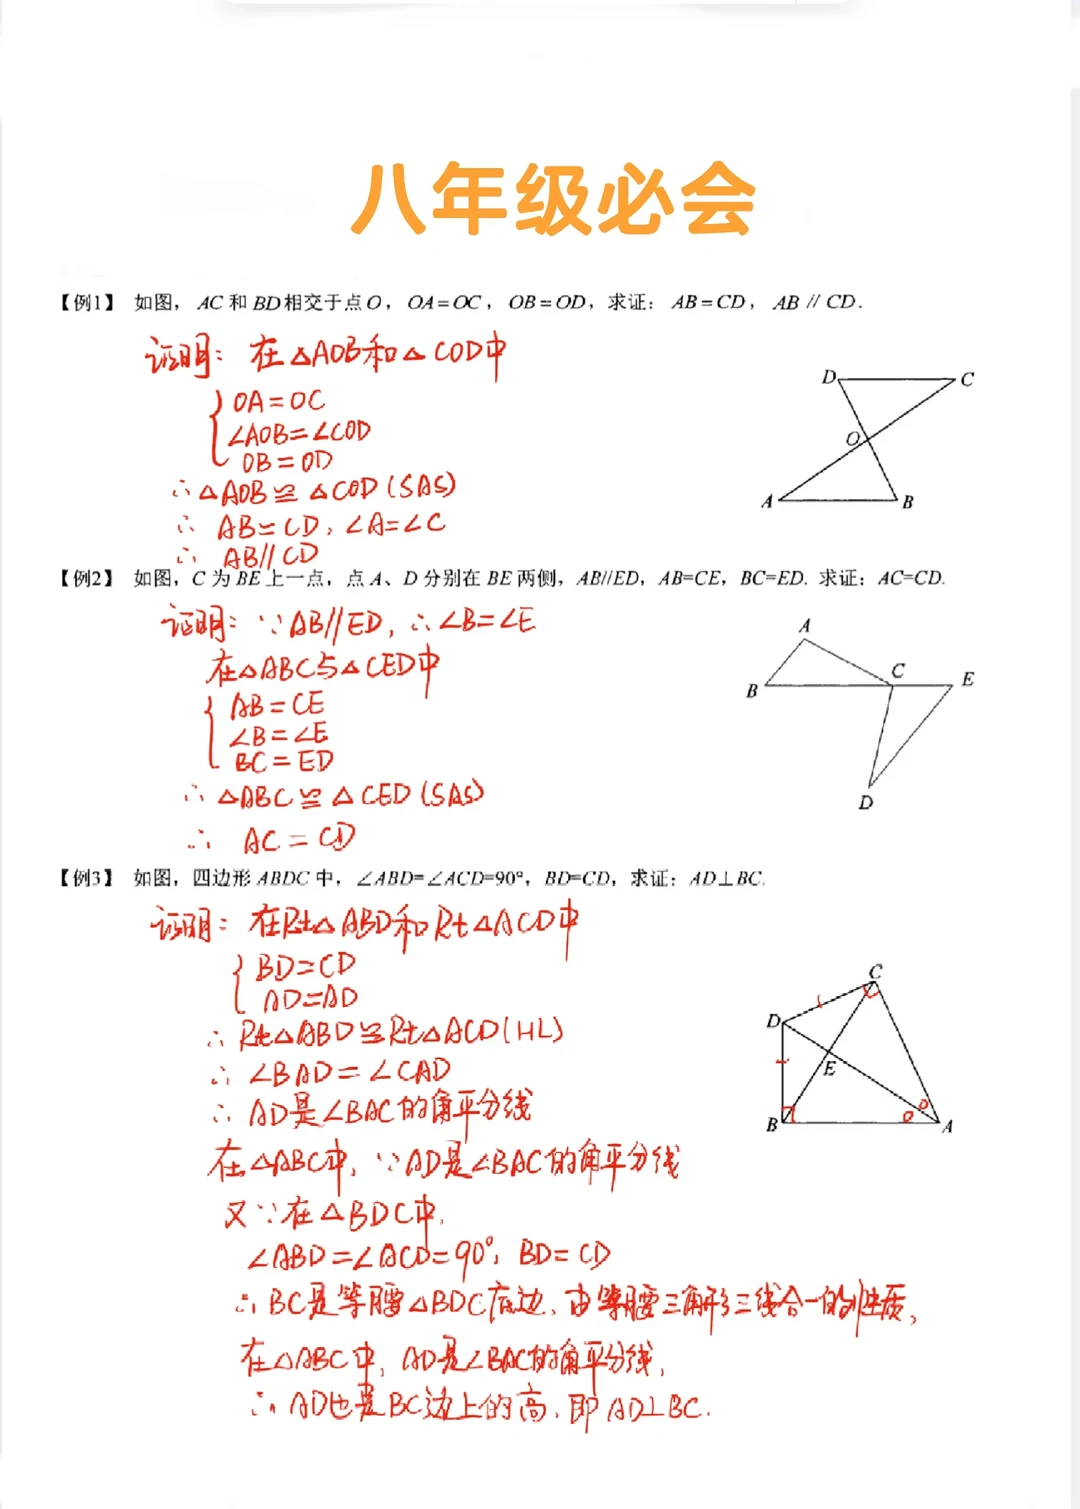 八年级必会
【例1】 如图，AC 和 BD 相交于点 O，OA=OC，OB=OD，求证：AB=CD，AB // CD.
证明：在△AOB和△COD中
OA=OC
∠AOB=∠COD
OB=OD
∴△AOB≌△COD(SAS)
∴ AB=CD，∠A=∠C
∴ AB//CD
D
C
O
A
B
【例2】 如图，C 为 BE 上一点，点 A、D 分别在 BE 两侧，AB//ED，AB=CE，BC=ED. 求证：AC=CD.
证明：∵AB//ED，∴∠B=∠E
在△ABC与△CED中
AB=CE
∠B=∠E
BC=ED
∴△ABC≌△CED(SAS)
∴ AC=CD
A
B
C
E
D
【例3】 如图，四边形 ABDC 中，∠ABD=∠ACD=90°，BD=CD，求证：AD⊥BC.
证明：在Rt△ABD和Rt△ACD中
BD=CD
AD=AD
∴Rt△ABD≌Rt△ACD(HL)
∴ ∠BAD=∠CAD
∴ AD是∠BAC的角平分线
在△ABC中，∵AD是∠BAC的角平分线
又∵在△BDC中，
∠ABD=∠ACD=90°，BD=CD
∴BC是等腰△BDC底边，由等腰三角形三线合一的性质，
在△ABC中，AD是∠BAC的角平分线，
∴AD也是BC边上的高，即AD⊥BC.
C
D
E
B
A